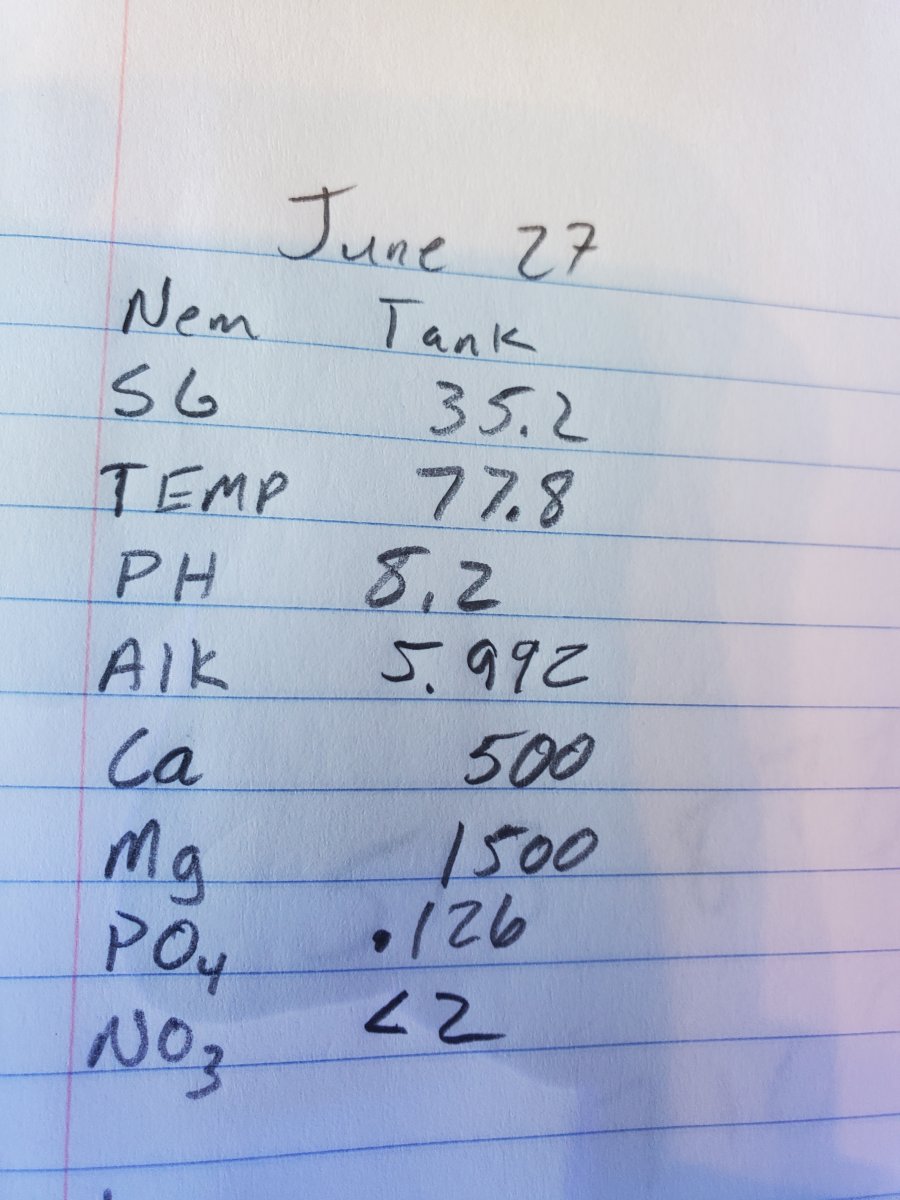 June 27
Nem Tank
SG 35.2
TEMP 77.8
PH 8.2
Alk 5.992
Ca 500
Mg 1500
PO₄ .126
NO₃ <2